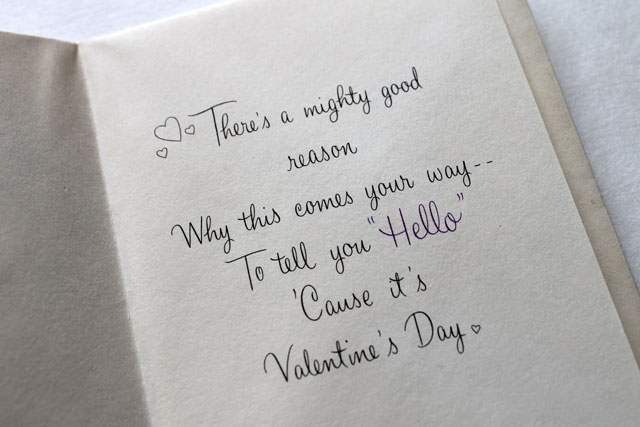 There's a mighty good
reason
Why this comes your way--
To tell you "Hello"
'Cause it's
Valentine's Day